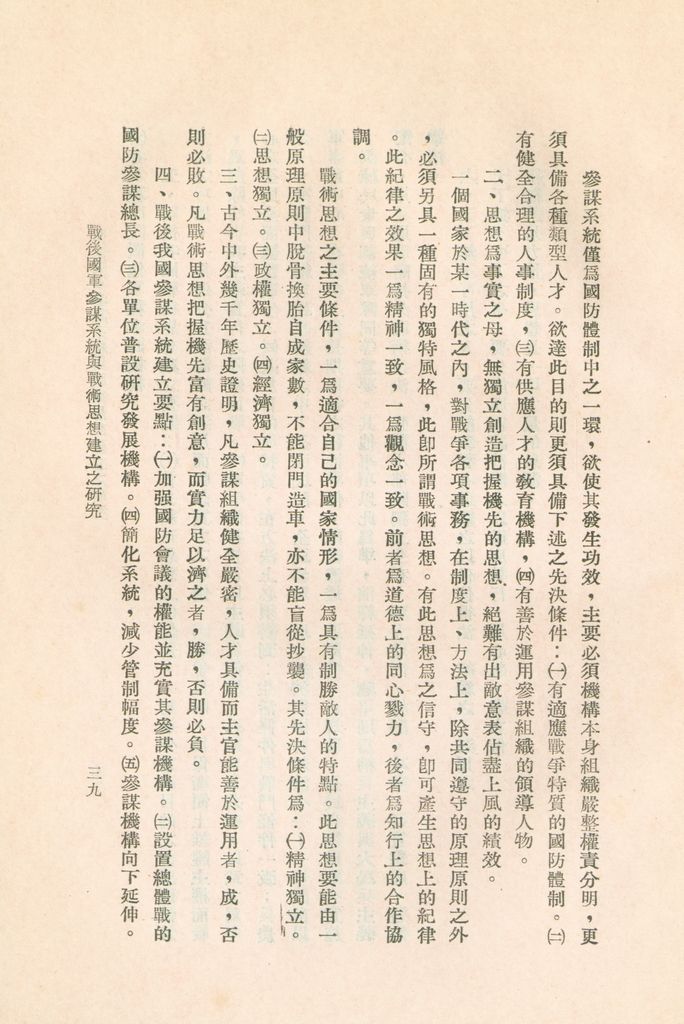 參謀系統僅爲國防體制中之一環，欲使其發生功效，主要必須機構本身組織嚴整權責分明，更
須具備各種類型人才。欲達此目的則更須具備下述之先決條件：㈠有適應戰爭特質的國防體制。㈡
有健全合理的人事制度，㈢有供應人才的教育機構，㈣有善於運用參謀組織的領導人物。
二、思想爲事實之母，無獨立創造把握機先的思想，絕難有出敵意表佔盡上風的績效。
一個國家於某一時代之內，對戰爭各項事務，在制度上、方法上，除共同遵守的原理原則之外
，必須另具一種固有的獨特風格，此卽所謂戰術思想。有此思想爲之信守，卽可產生思想上的紀律
。此紀律之效果一爲精神一致，一爲觀念一致。前者爲道德上的同心戮力，後者爲知行上的合作協
調。
戰術思想之主要條件，一爲適合自己的國家情形，一爲具有制勝敵人的特點。此思想要能由一
般原理原則中脫骨換胎自成家數，不能閉門造車，亦不能盲從抄襲。其先決條件爲：㈠精神獨立。
㈡思想獨立。㈢政權獨立。㈣經濟獨立。
三、古今中外幾千年歷史證明，凡參謀組織健全嚴密，人才具備而主官能善於運用者，成，否
則必敗。凡戰術思想把握機先富有創意，而實力足以濟之者，勝，否則必負。
四、戰後我國參謀系統建立要點：㈠加强國防會議的權能並充實其參謀機構。㈡設置總體戰的
國防參謀總長。㈢各單位普設研究發展機構。㈣簡化系統，減少管制幅度。㈤參謀機構向下延伸。
戰後國軍參謀系統與戰術思想建立之研究
三九